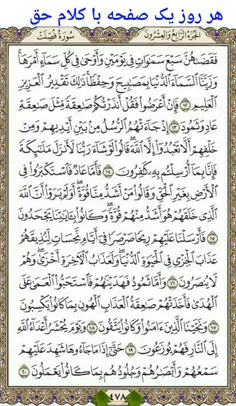 هر روز یک صفحه با کلام حق
الجزء الرابع والعشرون سورة فصلت
فَقَضَىٰهُنَّ سَبْعَ سَمَٰوَاتٍ فِي يَوْمَيْنِ وَأَوْحَىٰ فِي كُلِّ سَمَآءٍ أَمْرَهَا
وَزَيَّنَّا ٱلسَّمَآءَ ٱلدُّنْيَا بِمَصَٰبِيحَ وَحِفْظًا ذَٰلِكَ تَقْدِيرُ ٱلْعَزِيزِ
ٱلْعَلِيمِ ١٢ فَإِنْ أَعْرَضُوا۟ فَقُلْ أَنذَرْتُكُمْ صَٰعِقَةً مِّثْلَ صَٰعِقَةِ
عَادٍ وَثَمُودَ ١٣ إِذْ جَآءَتْهُمُ ٱلرُّسُلُ مِنۢ بَيْنِ أَيْدِيهِمْ وَمِنْ
خَلْفِهِمْ أَلَّا تَعْبُدُوٓا۟ إِلَّا ٱللَّهَ قَالُوا۟ لَوْ شَآءَ رَبُّنَا لَأَنزَلَ مَلَٰٓئِكَةً
فَإِنَّا بِمَآ أُرْسِلْتُم بِهِۦ كَٰفِرُونَ ١٤ فَأَمَّا عَادٌ فَٱسْتَكْبَرُوا۟ فِي
ٱلْأَرْضِ بِغَيْرِ ٱلْحَقِّ وَقَالُوا۟ مَنْ أَشَدُّ مِنَّا قُوَّةً أَوَلَمْ يَرَوْا۟ أَنَّ ٱللَّهَ
ٱلَّذِي خَلَقَهُمْ هُوَ أَشَدُّ مِنْهُمْ قُوَّةً وَكَانُوا۟ بِـَٔايَٰتِنَا يَجْحَدُونَ
١٥ فَأَرْسَلْنَا عَلَيْهِمْ رِيحًا صَرْصَرًا فِيٓ أَيَّامٍ نَّحِسَاتٍ لِّنُذِيقَهُمْ
عَذَابَ ٱلْخِزْيِ فِي ٱلْحَيَوٰةِ ٱلدُّنْيَا وَلَعَذَابُ ٱلْءَاخِرَةِ أَخْزَىٰ وَهُمْ
لَا يُنصَرُونَ ١٦ وَأَمَّا ثَمُودُ فَهَدَيْنَٰهُمْ فَٱسْتَحَبُّوا۟ ٱلْعَمَىٰ عَلَى
ٱلْهُدَىٰ فَأَخَذَتْهُمْ صَٰعِقَةُ ٱلْعَذَابِ ٱلْهُونِ بِمَا كَانُوا۟ يَكْسِبُونَ
١٧ وَنَجَّيْنَا ٱلَّذِينَ ءَامَنُوا۟ وَكَانُوا۟ يَتَّقُونَ ١٨ وَيَوْمَ يُحْشَرُ أَعْدَآءُ ٱللَّهِ
إِلَى ٱلنَّارِ فَهُمْ يُوزَعُونَ ١٩ حَتَّىٰٓ إِذَا مَا جَآءُوهَا شَهِدَ عَلَيْهِمْ
سَمْعُهُمْ وَأَبْصَٰرُهُمْ وَجُلُودُهُم بِمَا كَانُوا۟ يَعْمَلُونَ ٢٠
٤٧٨